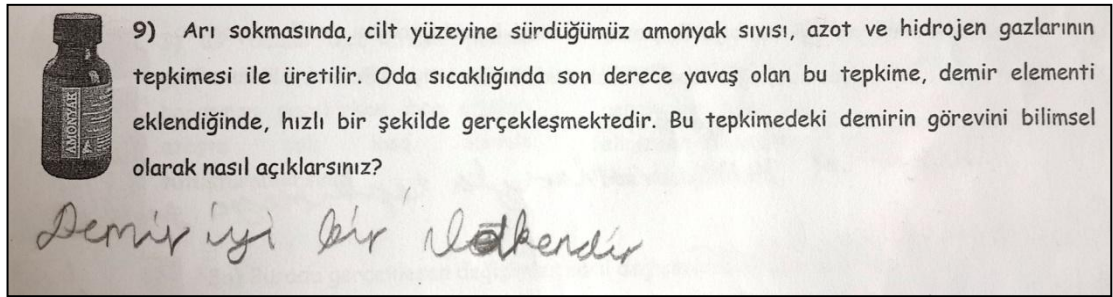 9) Arı sokmasında, cilt yüzeyine sürdüğümüz amonyak sıvısı, azot ve hidrojen gazlarının
tepkimesi ile üretilir. Oda sıcaklığında son derece yavaş olan bu tepkime, demir elementi
eklendiğinde, hızlı bir şekilde gerçekleşmektedir. Bu tepkimedeki demirin görevini bilimsel
olarak nasıl açıklarsınız?
AMONYAK
Demir iyi bir iletkendir